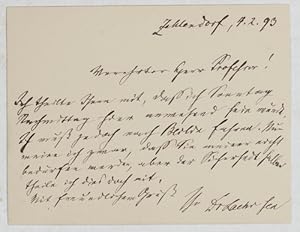 Zehlendorf, 9.2.93
Verehrter Herr Professor!
Ich theilte Ihnen mit, daß ich Sonntag
Nachmittag hier anwesend sein würde,
Ich muß jedoch nach fahren. Nun
meine ich zwar, daß Sie meiner nicht
bedürfen werden, aber der Sicherheit halber
theile ich dies doch mit.
Mit freundlichem Gruß
Ihr